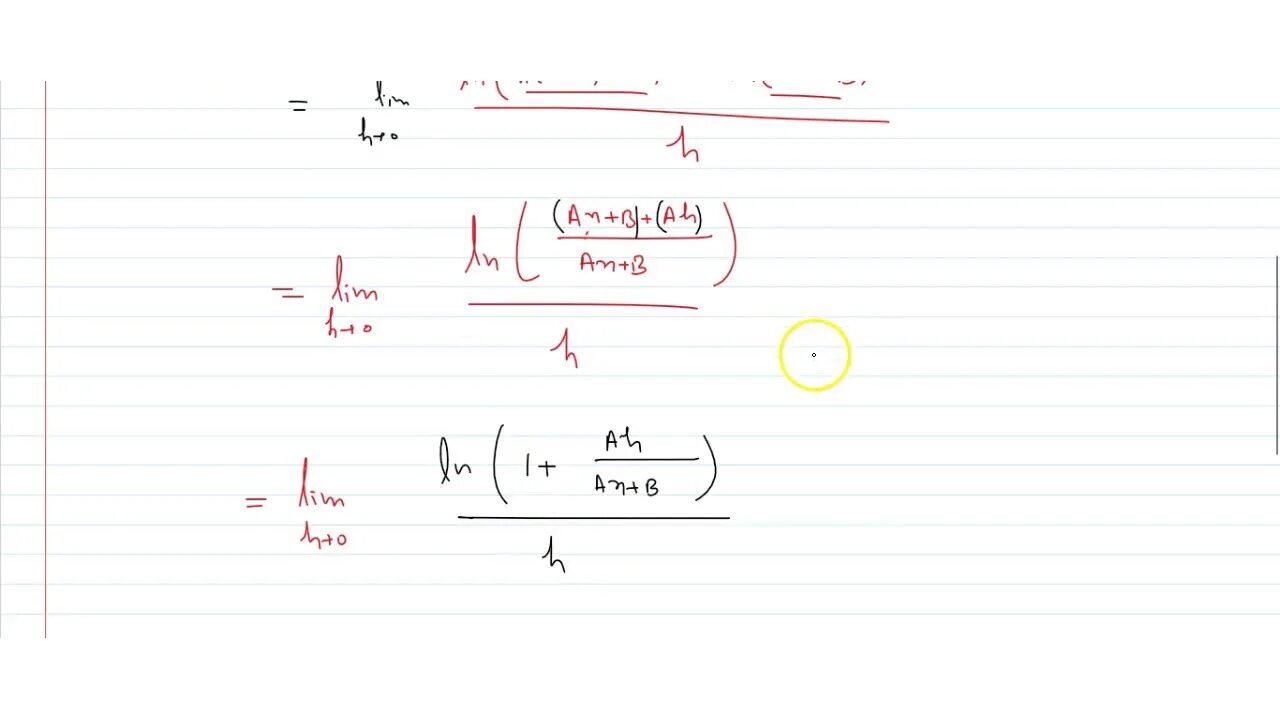 = lim h→0 h
= lim h→0 ln( (Ax+B)+(Ah) / Ax+B ) / h
= lim h→0 ln( 1 + Ah / Ax+B ) / h